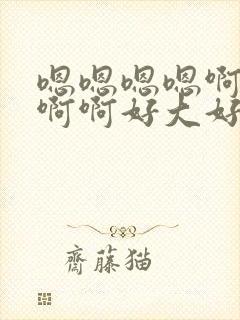 嗯嗯嗯嗯啊
啊啊好大好
齋藤猫